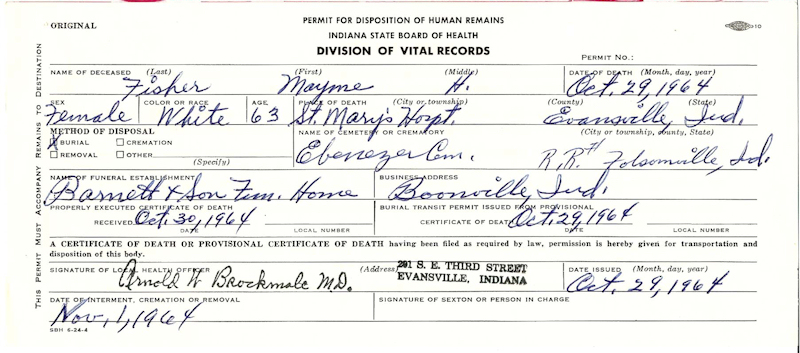 ORIGINAL
PERMIT FOR DISPOSITION OF HUMAN REMAINS
INDIANA STATE BOARD OF HEALTH
DIVISION OF VITAL RECORDS
10
PERMIT NO.:
THIS PERMIT MUST ACCOMPANY REMAINS TO DESTINATION
NAME OF DECEASED (Last) (First) (Middle) DATE OF DEATH (Month, day, year)
Fisher Mayme H. Oct. 29, 1964
SEX COLOR OR RACE AGE PLACE OF DEATH (City or township) (County) (State)
Female White 63 St. Mary's Hospt. Evansville, Ind.
METHOD OF DISPOSAL NAME OF CEMETERY OR CREMATORY (City or township, county, State)
X BURIAL CREMATION
REMOVAL OTHER
(Specify)
Ebenezer Cem. R.R. #1 Folsomville, Id.
NAME OF FUNERAL ESTABLISHMENT BUSINESS ADDRESS
Barnett & Son Fun. Home Boonville, Ind.
PROPERLY EXECUTED CERTIFICATE OF DEATH BURIAL TRANSIT PERMIT ISSUED FROM PROVISIONAL
RECEIVED Oct. 30, 1964 CERTIFICATE OF DEATH Oct. 29, 1964
DATE LOCAL NUMBER DATE LOCAL NUMBER
A CERTIFICATE OF DEATH OR PROVISIONAL CERTIFICATE OF DEATH having been filed as required by law, permission is hereby given for transportation and
disposition of this body.
SIGNATURE OF LOCAL HEALTH OFFICER (Address) DATE ISSUED (Month, day, year)
Arnold W Brockmole M.D. 201 S. E. THIRD STREET
EVANSVILLE, INDIANA
Oct. 29, 1964
DATE OF INTERMENT, CREMATION OR REMOVAL SIGNATURE OF SEXTON OR PERSON IN CHARGE
Nov. 1, 1964
SBH 6-24-4